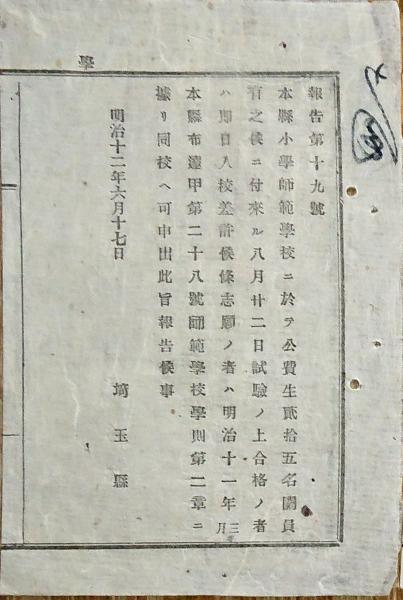 學
報告第十九號
本縣小學師範學校ニ於テ公費生貳拾五名闕員
有之候ニ付來ル八月廿二日試驗ノ上合格ノ者
ハ即日入校差許候條志願ノ者ハ明治十一年三月
本縣布達甲第二十八號師範學校學則第二章ニ
據リ同校ヘ可申出此旨報告候事
明治十二年六月十七日
埼玉縣